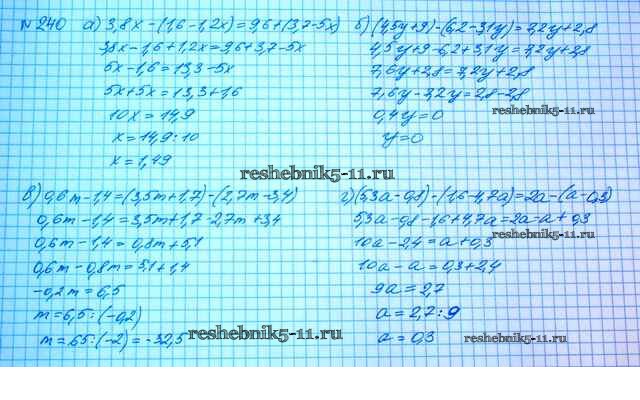 №240 а) 3,8х - (1,6 - 1,2х) = 9,6 + (3,7 - 5х)
3,8х - 1,6 + 1,2х = 9,6 + 3,7 - 5х
5х - 1,6 = 13,3 - 5х
5х + 5х = 13,3 + 1,6
10х = 14,9
х = 14,9 : 10
х = 1,49
б) (4,5у + 9) - (6,2 - 3,1у) = 7,2у + 2,8
4,5у + 9 - 6,2 + 3,1у = 7,2у + 2,8
7,6у + 2,8 = 7,2у + 2,8
7,6у - 7,2у = 2,8 - 2,8
0,4у = 0
у = 0
reshebnik5-11.ru
reshebnik5-11.ru
в) 0,6m - 1,4 = (3,5m + 1,7) - (2,7m - 3,4)
0,6m - 1,4 = 3,5m + 1,7 - 2,7m + 3,4
0,6m - 1,4 = 0,8m + 5,1
0,6m - 0,8m = 5,1 + 1,4
-0,2m = 6,5
m = 6,5 : (-0,2)
m = 65 : (-2) = -32,5
reshebnik5-11.ru
г) (5,3а - 0,8) - (1,6 - 4,7а) = 2а - (а - 0,3)
5,3а - 0,8 - 1,6 + 4,7а = 2а - а + 0,3
10а - 2,4 = а + 0,3
10а - а = 0,3 + 2,4
9а = 2,7
а = 2,7 : 9
а = 0,3
reshebnik5-11.ru
reshebnik5-11.ru